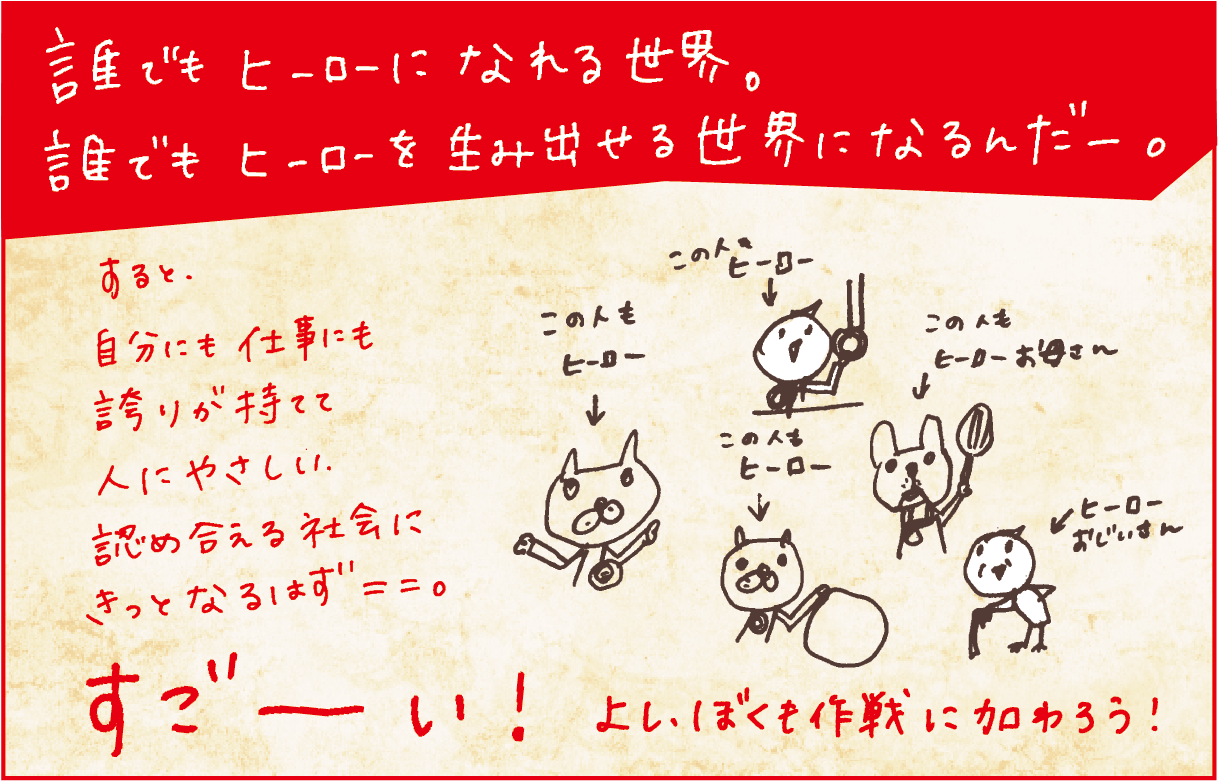 誰でも ヒーローに なれる 世界。
誰でも ヒーローを 生み出せる 世界になるんだー。
すると、
自分にも 仕事にも
誇りが 持てて
人に やさしい、
認め合える 社会に
きっと なるはず==。
すご゛ーい!
よし、ぼくも 作戦に 加わろう!
この人も
ヒーロー
この人も
ヒーロー
この人も
ヒーロー お母さん
この人も
ヒーロー
ヒーロー
おじいさん